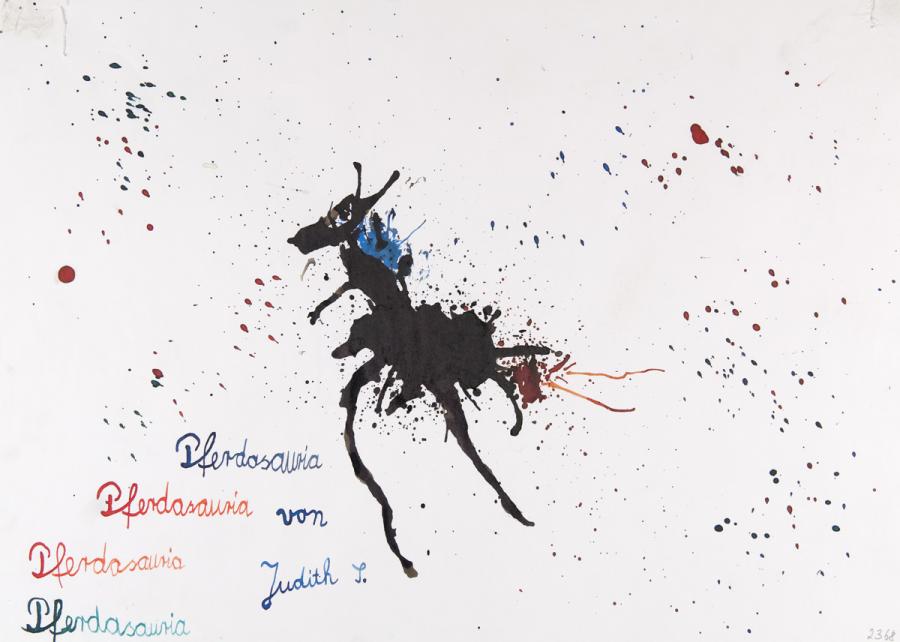 Pferdasauria
Pferdasauria von
Pferdasauria
Judith S.
Pferdasauria
2368